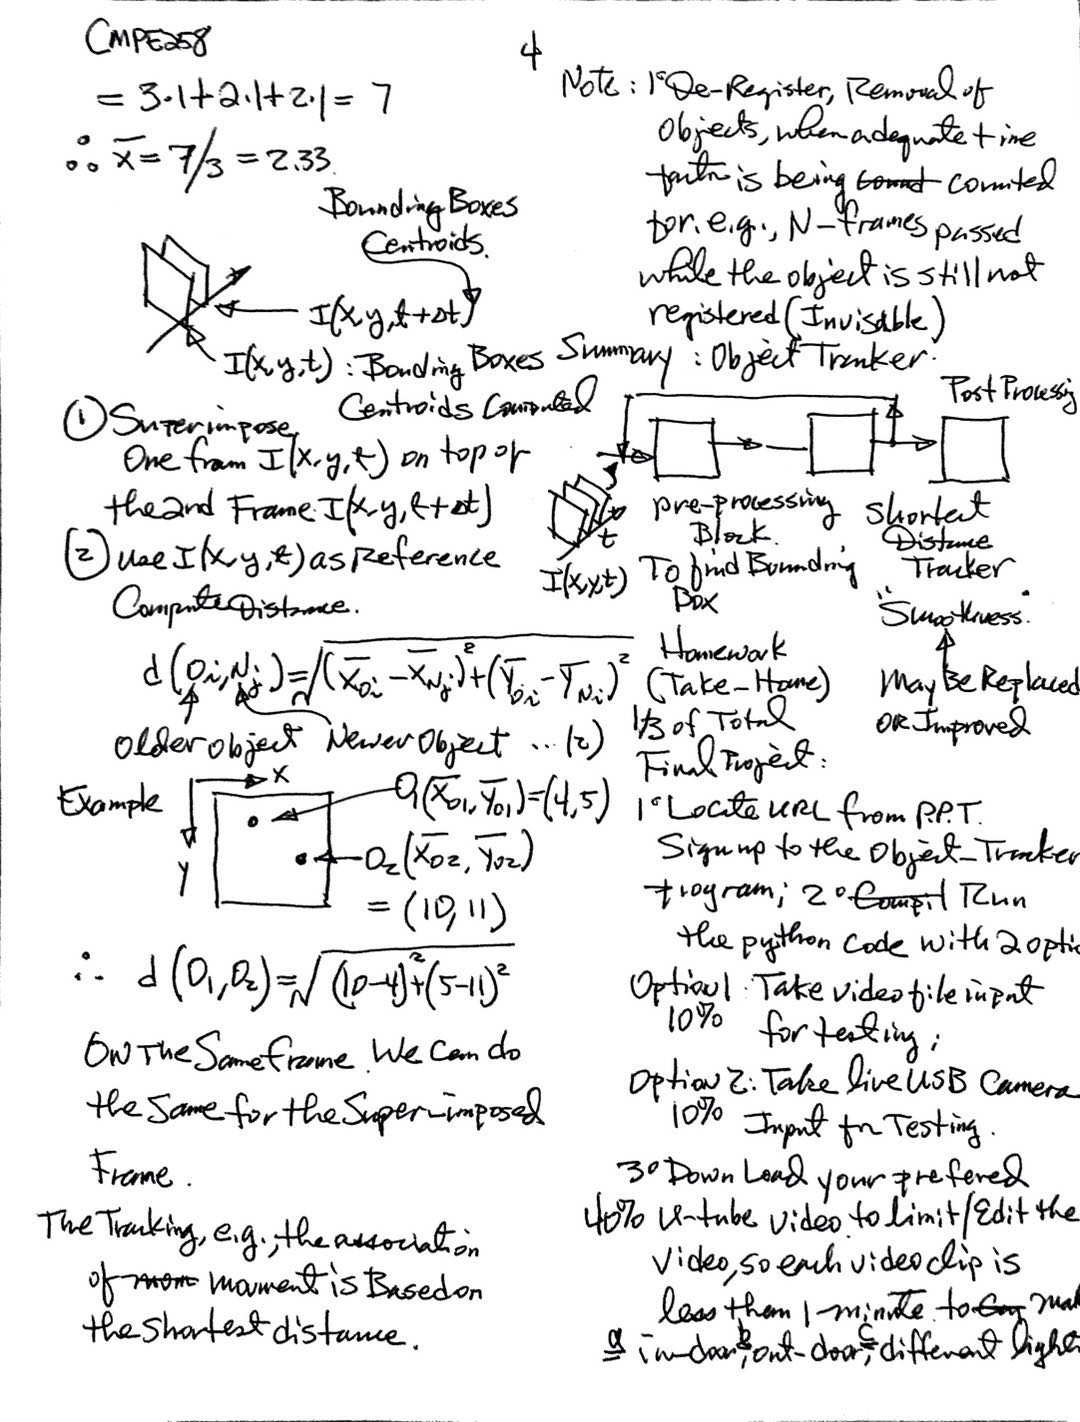 CMPE258
4
= 3·1+2·1+2·1 = 7
∴ x̄ = 7/3 = 2.33
Bounding Boxes
Centroids.
I(x,y,t+Δt)
I(x,y,t) : Bounding Boxes
Centroids Computed
① Superimpose
One fram I(x,y,t) on top of
the 2nd Frame I(x,y,t+Δt)
② use I(x,y,t) as Reference
Compute Distance.
d(Oi,Nj)=√(X̄Oi-X̄Nj)²+(ȲOi-ȲNi)²
older object Newer Object ... (2)
Example
X
Y
O1(X̄O1,ȲO1)=(4,5)
O2(X̄O2,ȲO2)
=(10,11)
∴ d(O1,O2)=√(10-4)²+(5-11)²
ON The Same frame. We Can do
the Same for the Super-imposed
Frame.
The Tracking, e.g., the association
of movment is Based on
the shortest distance.
Note: 1° De-Register, Removal of
Objects, when adequate time
is being counted
for. e.g., N-frames passed
while the object is still not
registered (Invisable)
Summary : Object Tracker.
Post Processing
t
I(x,y,t)
pre-processing
Block.
To find Bounding
Box
Shortest
Distance
Tracker
"Smoothness".
May Be Replaced
OR Improved
Homework
(Take-Home)
1/3 of Total
Final Project:
1° Locate URL from P.P.T.
Sign up to the Object-Tracker
program; 2° Run
the python code with 2 optio
Option 1: Take video file input
10% for testing;
Option 2: Take live USB Camera
10% Input for Testing.
3° Down Load your prefered
40% U-tube video to limit/Edit the
Video, so each video clip is
less then 1-minute to mak
a in-door, b out-door, c different light